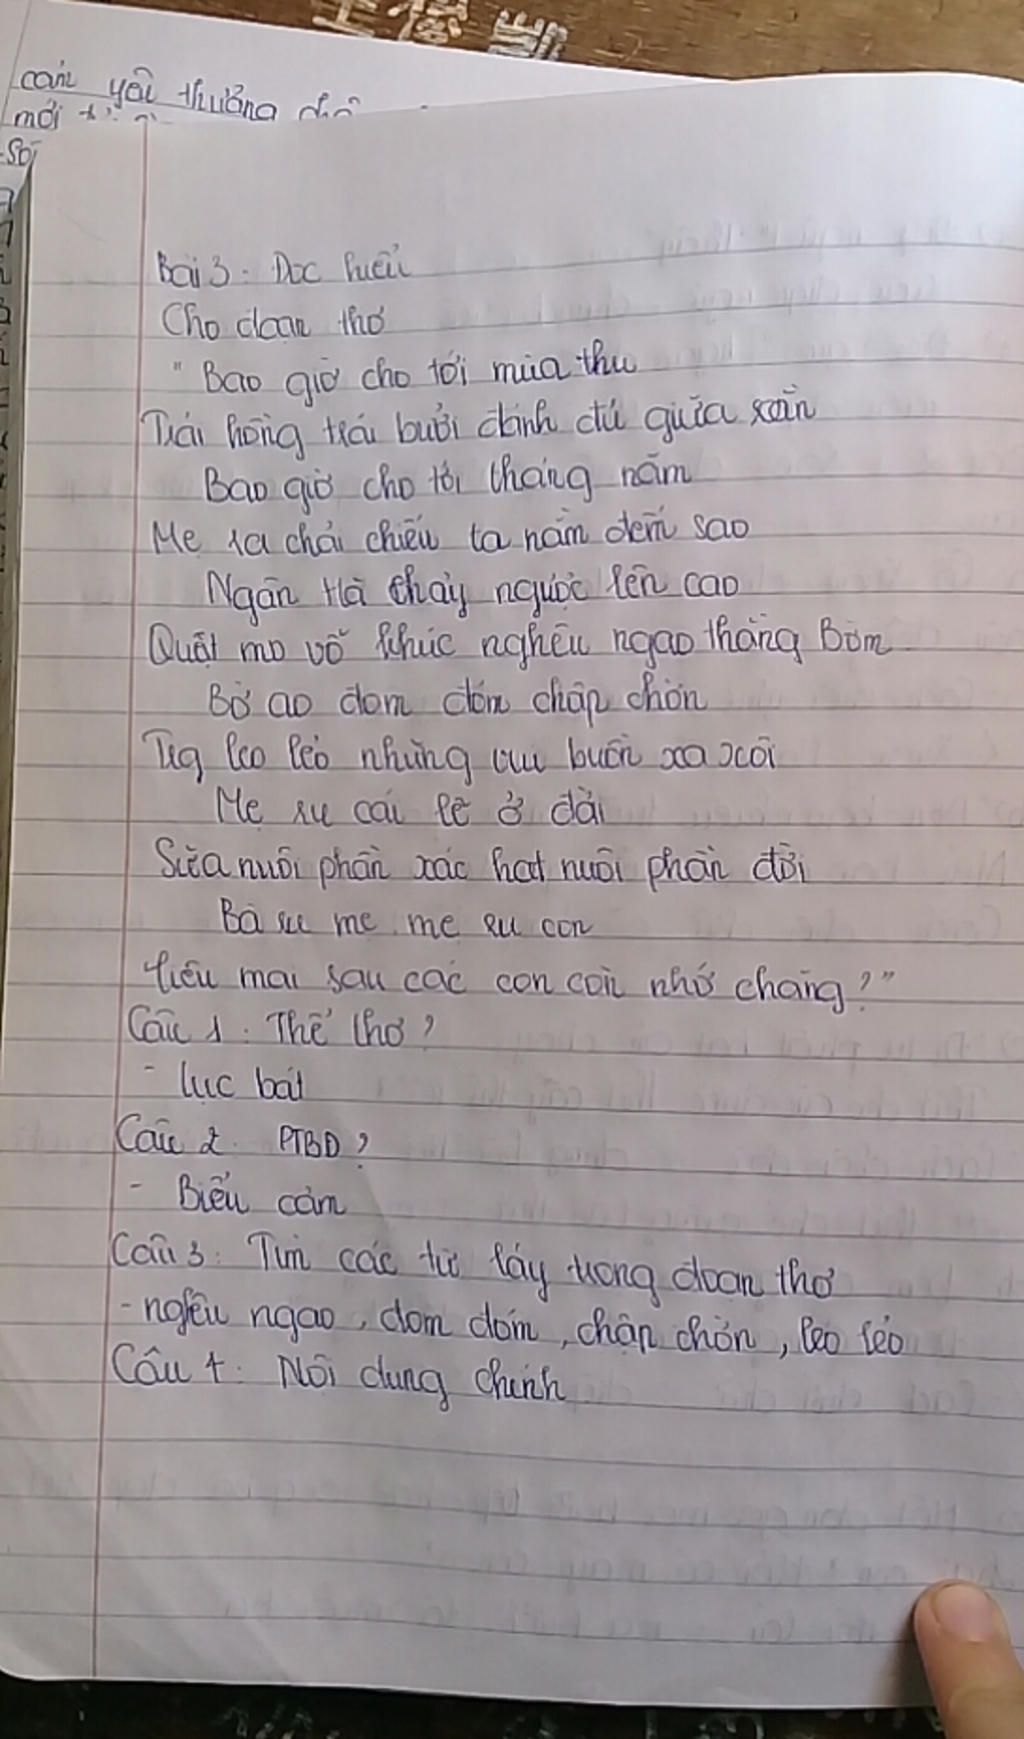 cảm yêu thương
mới
Bài 3: Đọc hiểu
Cho đoạn thơ
"Bao giờ cho tới mùa thu
Trái hồng trái bưởi đánh đu giữa rằm
Bao giờ cho tới tháng năm
Mẹ ra chải chiếu ta nằm đếm sao
Ngân Hà chảy ngược lên cao
Quạt mo vỗ khúc nghêu ngao thằng Bờm
Bờ ao đom đóm chập chờn
Trg leo lẻo những vui buồn xa xôi
Mẹ ru cái lẽ ở đời
Sữa nuôi phần xác hát nuôi phần đời
Bà ru mẹ mẹ ru con
liệu mai sau các con còn nhớ chăng?"
Câu 1: Thể thơ?
- lục bát
Câu 2. PTBĐ?
- Biểu cảm
Câu 3: Tìm các từ láy trong đoạn thơ
- nghêu ngao, đom đóm, chập chờn, leo lẻo
Câu 4: Nội dung chính